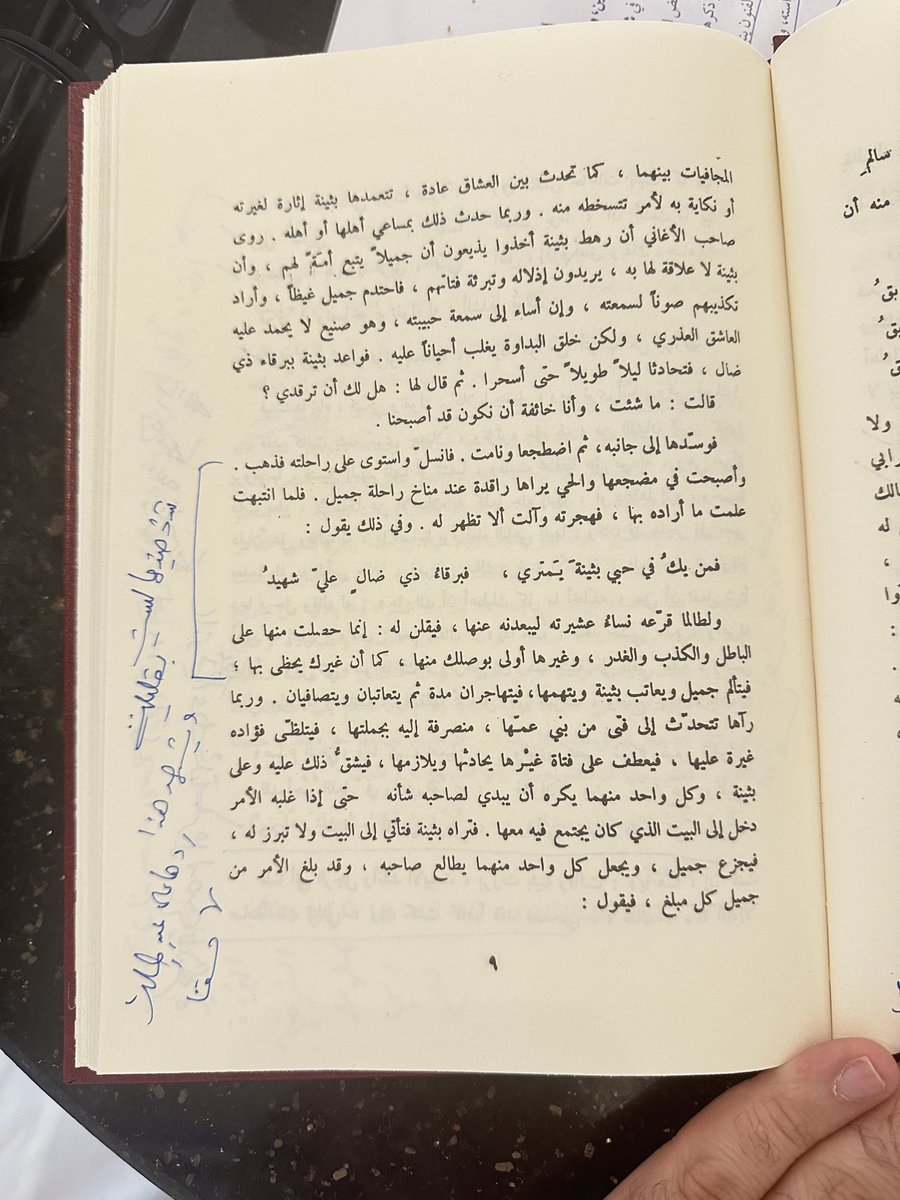 المجافيات بينهما ، كما تحدث بين العشاق عادة ، تتعمدها بثينة إثارة لغيرته
أو نكاية به لأمر تتسخطه منه . وربما حدث ذلك بمساعي أهلها أو أهله . روى
صاحب الأغاني أن رهط بثينة أخذوا يذيعون أن جميلاً يتبع أمَةً لهم ، وأن
بثينة لا علاقة لها به ، يريدون إذلاله وتبرئة فتاتهم ، فاحتدم جميل غيظاً ، وأراد
تكذيبهم صوناً لسمعته ، وإن أساء إلى سمعة حبيبته ، وهو صنيع لا يحمد عليه
العاشق العذري ، ولكن خلق البداوة يغلب أحياناً عليه . فواعد بثينة ببرقاء ذي
ضال ، فتحادثا ليلاً طويلاً حتى أسحرا . ثم قال لها : هل لك أن ترقدي ؟
قالت : ما شئت ، وأنا خائفة أن نكون قد أصبحنا .
فوسّدها إلى جانبه، ثم اضطجعا ونامت . فانسلّ واستوى على راحلته فذهب .
وأصبحت في مضجعها والحي يراها راقدة عند مناخ راحلة جميل . فلما انتبهت
علمت ما أراده بها ، فهجرته وآلت ألا تظهر له . وفي ذلك يقول :
فمن يكُ في حبي بثينةَ يَمتري ، فبرقاءُ ذي ضالٍ عليّ شهيدُ
ولطالما قرّعه نساءُ عشيرته ليبعدنه عنها ، فيقلن له : إنما حصلت منها على
الباطل والكذب والغدر ، وغيرها أولى بوصلك منها ، كما أن غيرك يحظى بها ؛
فيتألم جميل ويعاتب بثينة ويتهمها، فيتهاجران مدة ثم يتعاتبان ويتصافيان . وربما
رآها تتحدّث إلى فتى من بني عمّها ، منصرفة إليه بجملتها ، فيتلظّى فؤاده
غيرة عليها ، فيعطف على فتاة غيْرها يحادثها ويلازمها ، فيشقُّ ذلك عليه وعلى
بثينة ، وكل واحد منهما يكره أن يبدي لصاحبه شأنه حتى إذا غلبه الأمر
دخل إلى البيت الذي كان يجتمع فيه معها . فتراه بثينة فتأتي إلى البيت ولا تبرز له ،
فيجزع جميل ، ويجعل كل واحد منهما يطالع صاحبه ، وقد بلغ الأمر من
جميل كل مبلغ ، فيقول :
٩